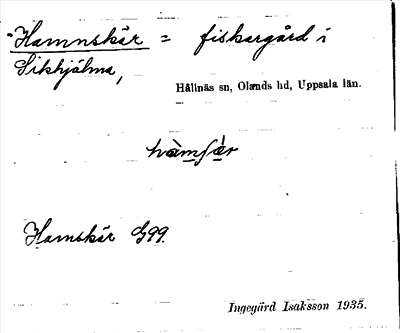 Hamnskär = fiskargård i
Sikhjälma,
Hållnäs sn, Olands hd, Uppsala län.
Hamskär G99.
Ingegärd Isaksson 1935.